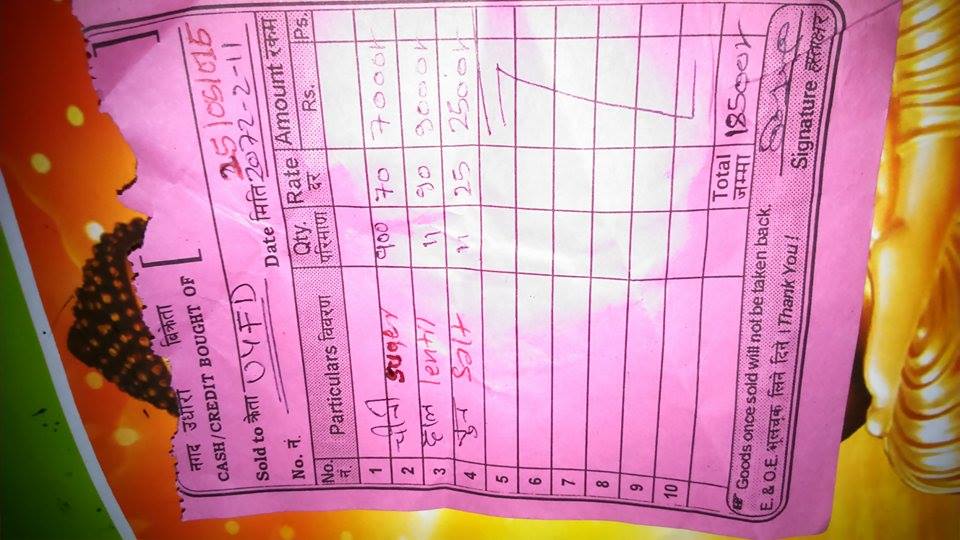 नगद उधारो बिक्रेता [ ]
CASH/CREDIT BOUGHT OF
25/05/015
Sold to क्रेता UYFD Date मिति 2072-2-11
No. नं.
No. नं. Particulars विवरण Qty. परिमाण Rate दर Amount रकम Rs. Ps.
1 चीनी suger १०० 70 7000
2
3 दाल lentil 11 90 9000
4 नुन salt 11 25 2500
5
6
7
8
9
10
Total जम्मा 18500
Goods once sold will not be taken back.
E. & O.E. भूलचूक लिने दिने । Thank You!
Signature हस्ताक्षर